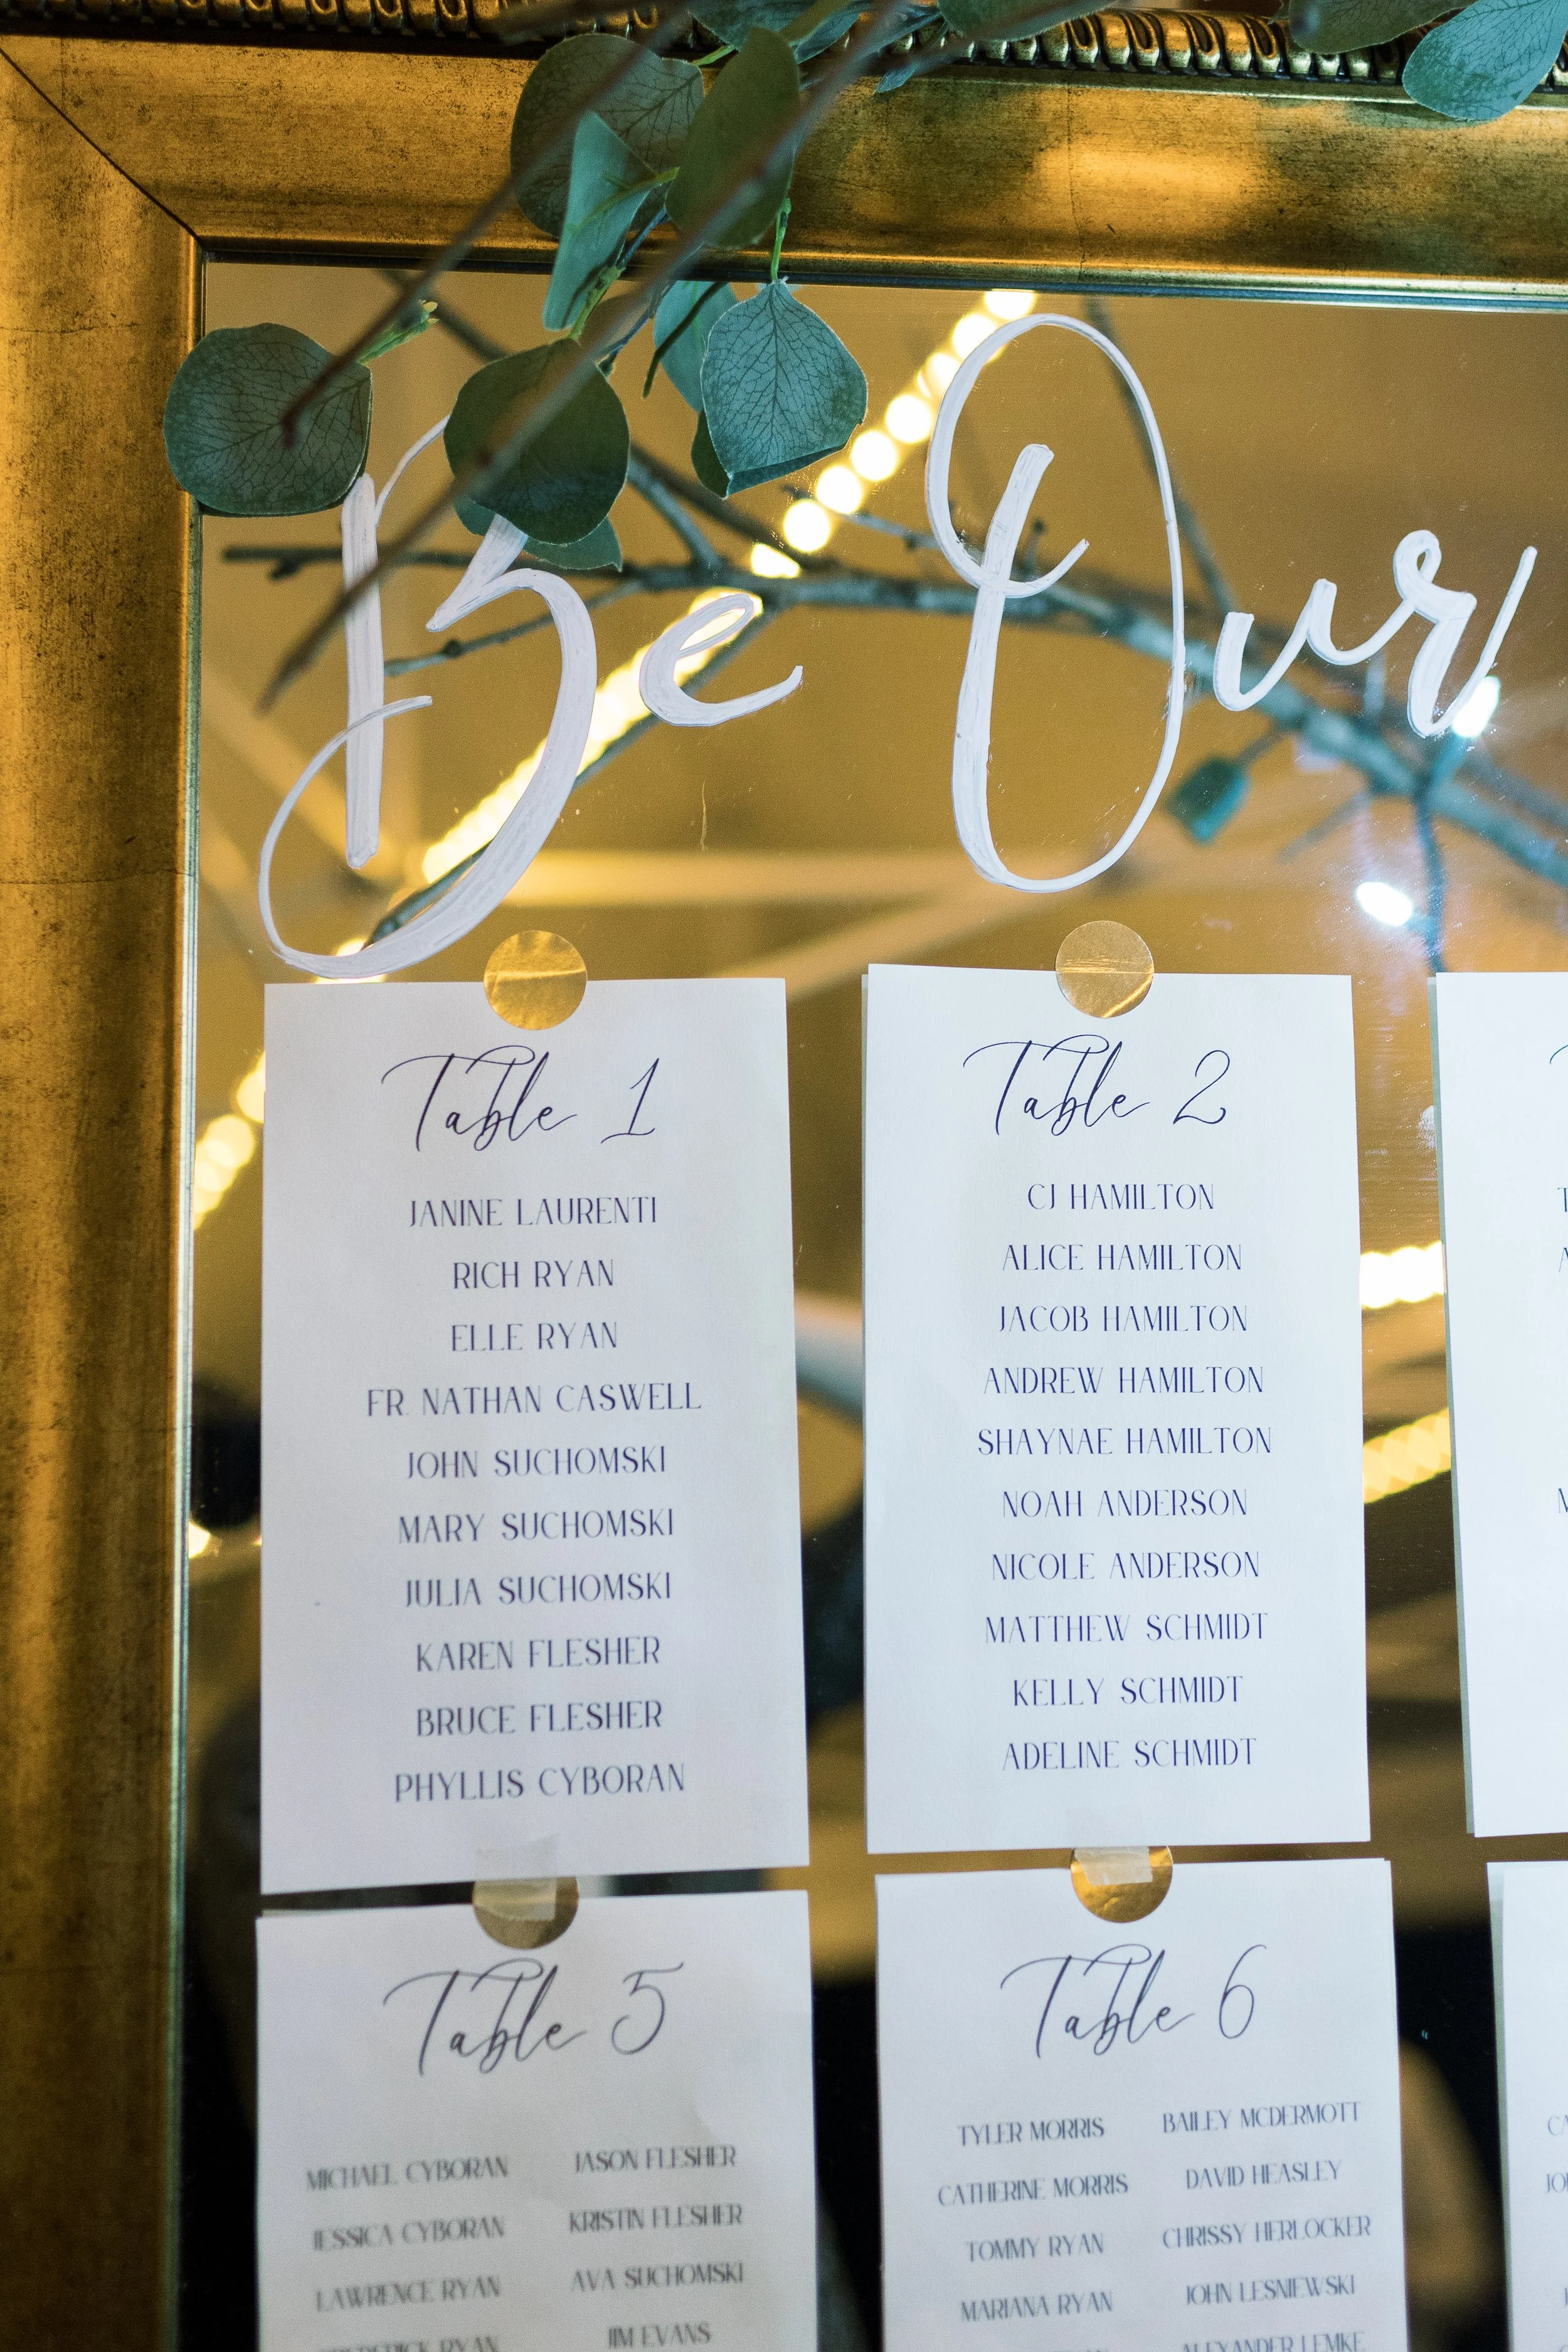 Be Our
Table 1
JANINE LAURENTI
RICH RYAN
ELLE RYAN
FR. NATHAN CASWELL
JOHN SUCHOMSKI
MARY SUCHOMSKI
JULIA SUCHOMSKI
KAREN FLESHER
BRUCE FLESHER
PHYLLIS CYBORAN
Table 2
CJ HAMILTON
ALICE HAMILTON
JACOB HAMILTON
ANDREW HAMILTON
SHAYNAE HAMILTON
NOAH ANDERSON
NICOLE ANDERSON
MATTHEW SCHMIDT
KELLY SCHMIDT
ADELINE SCHMIDT
Table 5
MICHAEL CYBORAN
JESSICA CYBORAN
LAWRENCE RYAN
RYAN
JASON FLESHER
KRISTIN FLESHER
AVA SUCHOMSKI
JIM EVANS
Table 6
TYLER MORRIS
CATHERINE MORRIS
TOMMY RYAN
MARIANA RYAN
BAILEY MCDERMOTT
DAVID HEASLEY
CHRISSY HERLOCKER
JOHN LESNIEWSKI
ALEXANDER LEMKE